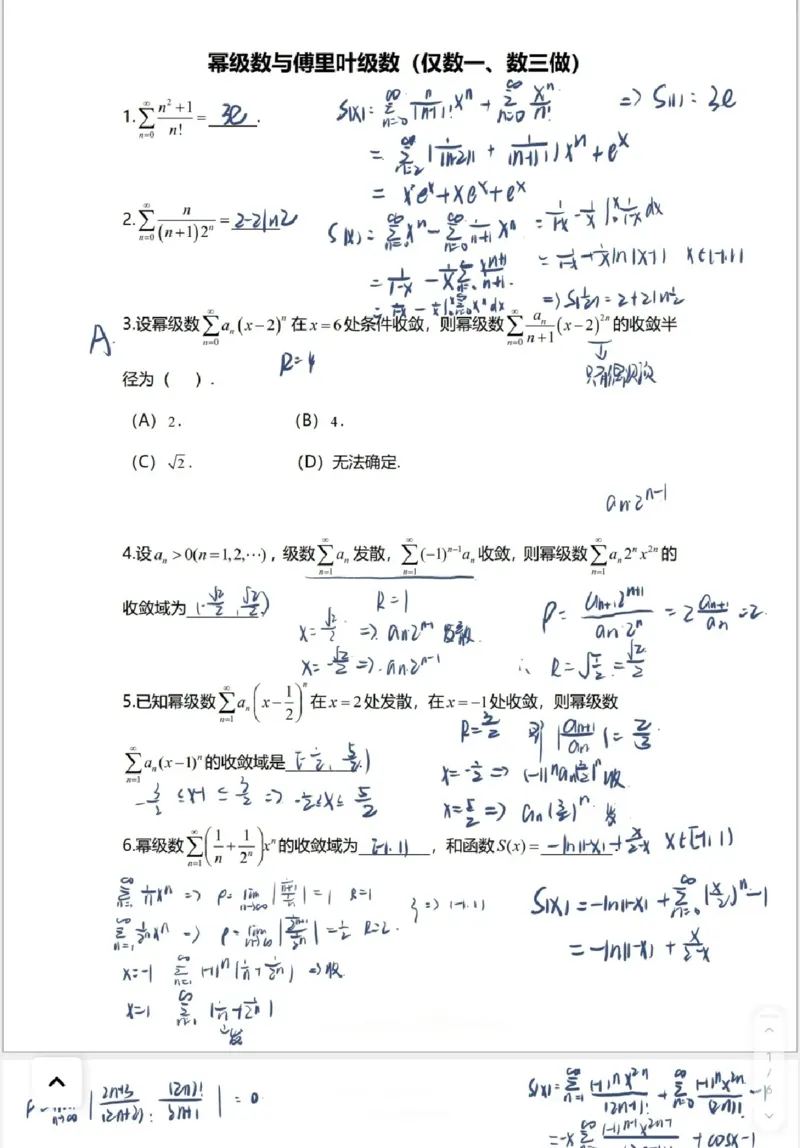 幂级数与傅里叶级数（仅数一、数三做）
1. \sum_{n=0}^{\infty} \frac{n^2+1}{n!} = 3e .
S(x) = \sum_{n=0}^{\infty} \frac{n}{(n-1)!} x^n + \sum_{n=0}^{\infty} \frac{x^n}{n!} => S(1) = 3e
= x^2e^x + xe^x + e^x
2. \sum_{n=0}^{\infty} \frac{n}{(n+1)2^n} = 2-2ln2
S(x) = \sum_{n=0}^{\infty} x^n - \sum_{n=0}^{\infty} \frac{1}{n+1} x^n = \frac{1}{1-x} - \frac{1}{x} \int_0^x \frac{1}{1-x} dx
= \frac{1}{1-x} - \frac{1}{x} \sum_{n=0}^{\infty} \frac{x^{n+1}}{n+1}
3.设幂级数 \sum_{n=0}^{\infty} a_n (x-2)^n 在 x=6 处条件收敛，则幂级数 \sum_{n=0}^{\infty} \frac{a_n}{n+1} (x-2)^{2n} 的收敛半
A.
R=4
径为（ ）.
（A）2. （B）4.
（C）\sqrt{2}. （D）无法确定.
a_n·2^{n-1}
4.设 a_n > 0(n=1,2,⋯)，级数 \sum_{n=1}^{\infty} a_n 发散，\sum_{n=1}^{\infty} (-1)^{n-1} a_n 收敛，则幂级数 \sum_{n=1}^{\infty} a_n 2^n x^{2n} 的
收敛域为 (-\frac{\sqrt{2}}{2}, \frac{\sqrt{2}}{2})
R=1
ρ = \frac{a_{n+1} 2^{n+1}}{a_n·2^n} = 2\frac{a_{n+1}}{a_n} = 2
x=\frac{\sqrt{2}}{2} => a_n·2^{n-1} 发散.
x=-\frac{\sqrt{2}}{2} => a_n·2^{n-1}
∴ R=\sqrt{\frac{1}{2}} = \frac{\sqrt{2}}{2}
5.已知幂级数 \sum_{n=1}^{\infty} a_n (x-\frac{1}{2})^n 在 x=2 处发散，在 x=-1 处收敛，则幂级数
R=\frac{3}{2} 则 |\frac{a_{n+1}}{a_n}| = \frac{2}{3}
\sum_{n=1}^{\infty} a_n(x-1)^n 的收敛域是 [-\frac{1}{2}, \frac{5}{2})
-\frac{3}{2} ≤ x-1 ≤ \frac{3}{2} => -\frac{1}{2} ≤ x ≤ \frac{5}{2}
x=\frac{5}{2} => a_n(\frac{3}{2})^n 发
6.幂级数 \sum_{n=1}^{\infty} (\frac{1}{n} + \frac{1}{2^n}) x^n 的收敛域为 [-1,1) ，和函数 S(x) = -ln(1-x) + \frac{x}{2-x} x∈[-1,1)
\sum_{n=1}^{\infty} \frac{1}{n} x^n => ρ = \lim_{n→∞} |\frac{\frac{1}{n+1}}{\frac{1}{n}}| = 1 R=1
} => (-1,1)
S(x) = -ln(1-x) + \sum_{n=0}^{\infty} (\frac{x}{2})^n - 1
\sum_{n=1}^{\infty} \frac{1}{2^n} x^n => ρ = \lim_{n→∞} |\frac{\frac{1}{2^{n+1}}}{\frac{1}{2^n}}| = \frac{1}{2} R=2.
= -ln(1-x) + \frac{x}{2-x}
x=-1 \sum_{n=1}^{\infty} (-1)^n (\frac{1}{n} + \frac{1}{2^n}) => 收
x=1 \sum_{n=1}^{\infty} (\frac{1}{n} + \frac{1}{2^n})
发
1
/
6